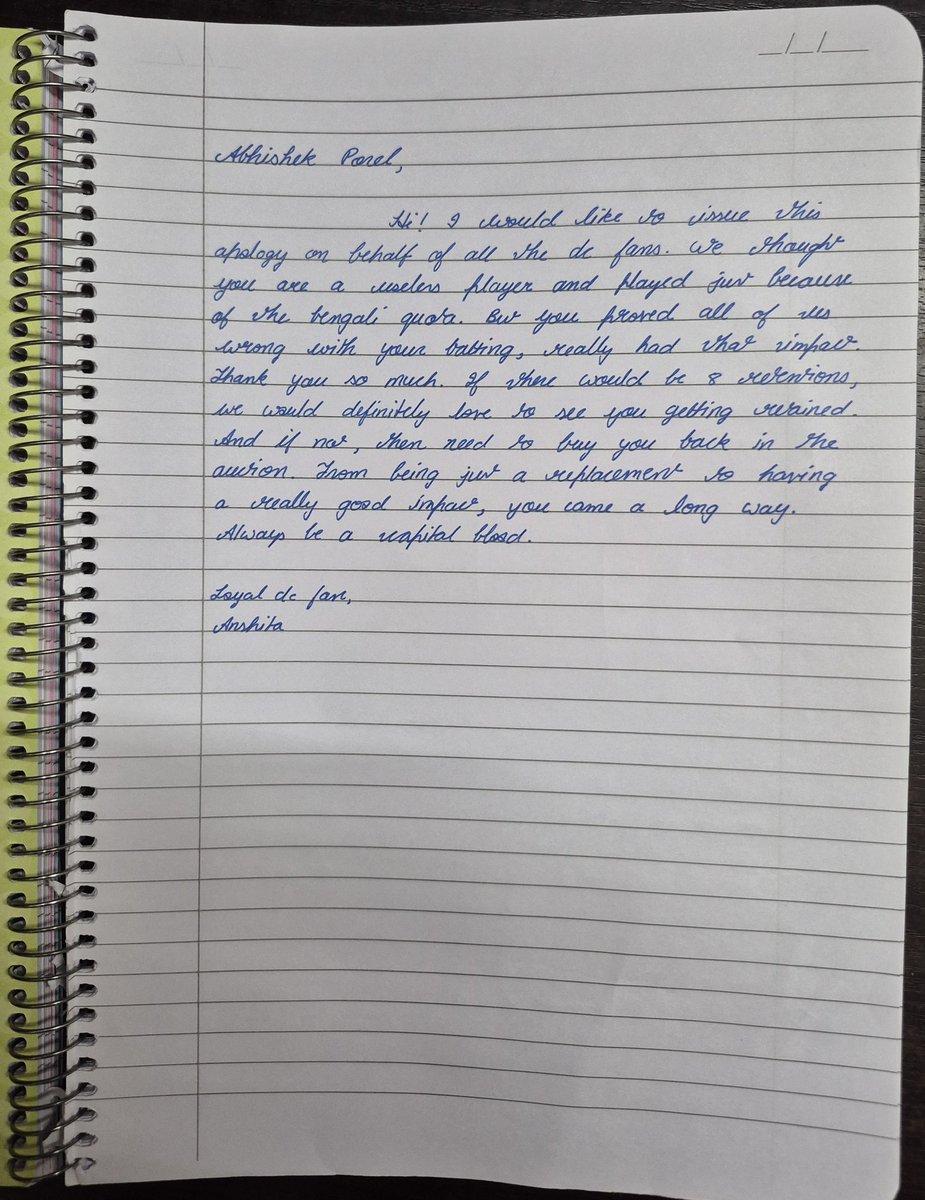 __/__/____
Abhishek Porel,
Hi! I would like to issue this
apology on behalf of all the dc fans. We thought
you are a useless player and played just because
of the bengali quota. But you proved all of us
wrong with your batting, really had that impact.
Thank you so much. If there would be 8 retentions,
we would definitely love to see you getting retained.
And if not, then need to buy you back in the
auction. From being just a replacement to having
a really good impact, you came a long way.
Always be a capital blood.
Loyal dc fan,
Anshita